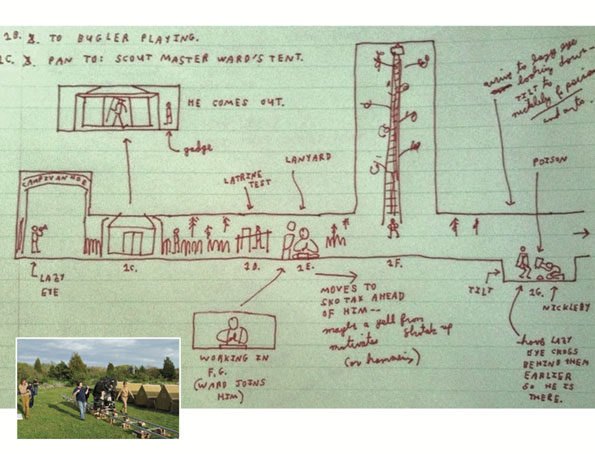 1B. TO BUGLER PLAYING.
1C. PAN TO: SCOUT MASTER WARD'S TENT.
HE COMES OUT.
gadge
arrive to lazy eye
looking down—
TILT to
nickleby & poison
LANYARD
LATRINE
TEST
POISON
CAMP IVANHOE
LAZY
EYE
1C.
1D.
1E.
1F.
TILT
1G.
NICKLEBY
MOVES TO
SKOTAK AHEAD
OF HIM--
maybe a yell from
motivates
WORKING IN
F.G.
(WARD JOINS
HIM)
have LAZY
EYE CROSS
BEHIND THEM
EARLIER
SO HE IS
THERE.